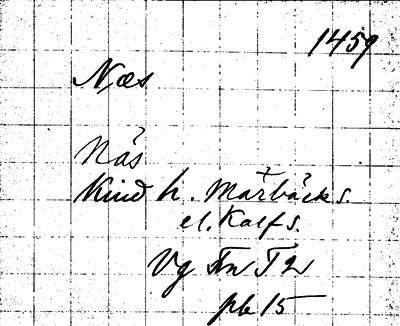 1459
Næs
Näs
Kind h. Marbäcks.
el. Kalfs.
Vg Fn T2
pb 15